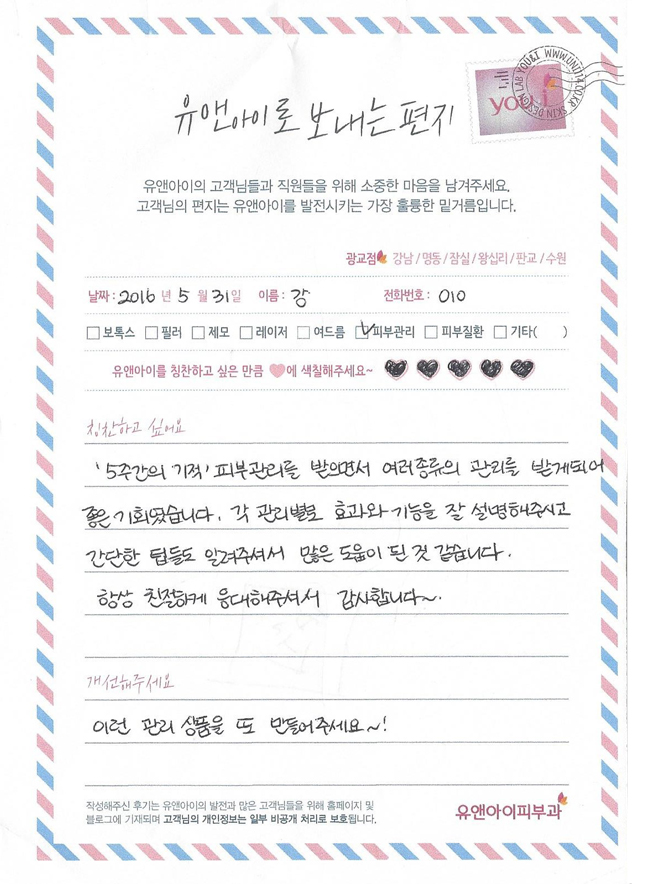 SKIN DESIGN LAB YOU&I WWW.UNI114.CO.KR
you&i
유앤아이로 보내는 편지
유앤아이의 고객님들과 직원들을 위해 소중한 마음을 남겨주세요.
고객님의 편지는 유앤아이를 발전시키는 가장 훌륭한 밑거름입니다.
광교점 강남/명동/잠실/왕십리/판교/수원
날짜: 2016 년 5 월 31일 이름: 강 전화번호: 010
보톡스 필러 제모 레이저 여드름 피부관리 피부질환 기타( )
유앤아이를 칭찬하고 싶은 만큼 에 색칠해주세요~
칭찬하고 싶어요
'5주간의 기적' 피부관리를 받으면서 여러종류의 관리를 받게되어
좋은 기회였습니다. 각 관리별로 효과와 기능을 잘 설명해주시고
간단한 팁들도 알려주셔서 많은 도움이 된 것 같습니다.
항상 친절하게 응대해주셔서 감사합니다~.
개선해주세요
이런 관리 상품을 또 만들어주세요~!
작성해주신 후기는 유앤아이의 발전과 많은 고객님들을 위해 홈페이지 및
블로그에 기재되며 고객님의 개인정보는 일부 비공개 처리로 보호됩니다.
유앤아이피부과